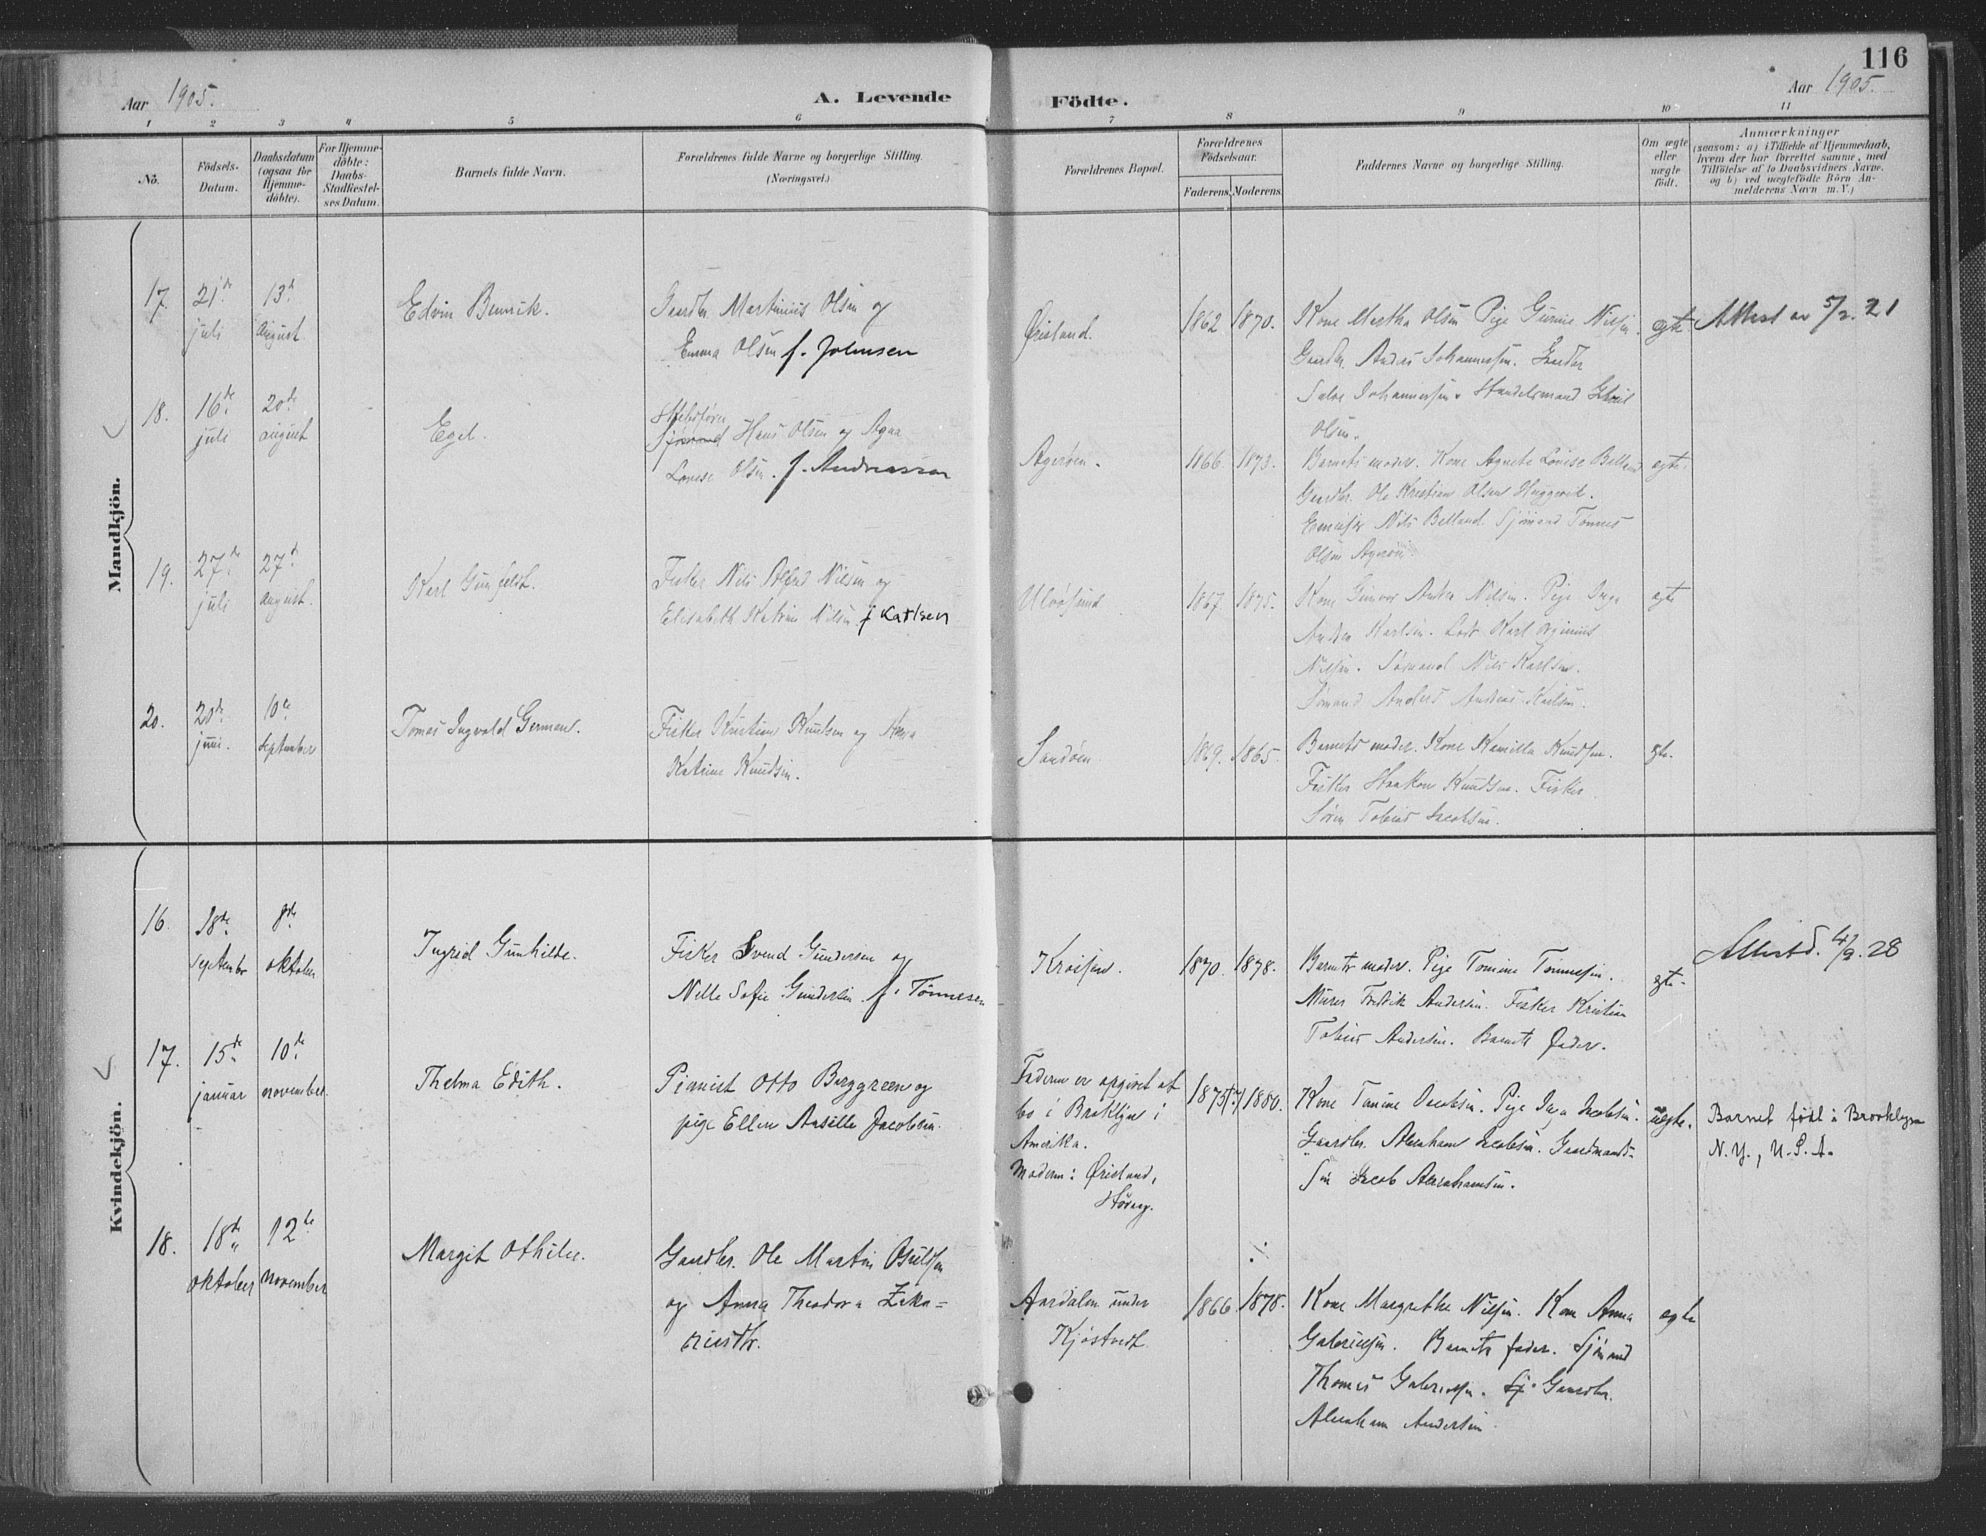 116
Aar 1905.
A. Levende
Födte.
Aar 1905.
1 2 3 4 5 6 7 8 9 10 11
No.
Födsels-
Datum.
Daabsdatum
(ogsaa for
Hjemme-
döbte).
For Hjemme-
döbte:
Daabs-
Stadfæstel-
ses Datum.
Barnets fulde Navn.
Forældrenes fulde Navne og borgerlige Stilling.
(Næringsvei.)
Forældrenes Bopæl.
Forældrenes
Födselsaar.
Faderens. Moderens.
Faddernes Navne og borgerlige Stilling.
Om ægte
eller
uægte
födt.
Anmærkninger
(saasom: a) i Tilfælde af Hjemmedaab,
hvem der har forrettet samme, med
Tilföielse af to Daabsvidners Navne,
og b) ved uægtefödte Börn An-
melderens Navn m. V.)
Mandkjön.
17. 21de
juli
13de
August
Edvin Bennik.
Gaardbr. Martinius Olsen og
Emma Olsen f. Johnsen
Øvisland.
1862 1870.
Kone Martha Olsen Pige Gurine Nilsen.
Gaardbr. Anders Johannessen. Gaardbr.
Salve Johannessen. Handelsmand
Olsen.
egte
Attest av 5/2. 21
18. 16de
juli
20de
august
Egil.
Skibsfører
Sjømand Hans Olsen og Agna
Lovise Olsen. f. Andreassen
Agerøen.
1866 1873.
Barnets moder. Kone Agnete Lovise Belland
Gaardbr. Ole Kristian Olsen
Nils Belland. Sjømand Tønnes
Olsen Agerøen
egte.
19. 27de
juli
27de
august.
Karl Gunfeldt.
Fisker Nils Alfred Nilsen og
Elisabeth Katrine Nilsen f Karlsen
Ulvøsund
1867. 1875.
Kone Gunvor Nilsen. Pige Inga
Andrea Karlsen. Lods Karl
Nilsen. Sømand Nils Karlsen.
Sømand Anders Andreas Karlsen.
egte
20. 20de
juni.
10de
september
Tomas Ingvald German.
Fisker Kristian Knudsen og Anna
Katrine Knudsen.
Sandøen.
1869. 1865.
Barnets moder. Kone Kamilla Knudsen.
Fisker Haakon Knudsen. Fisker
Søren Tobias Jacobsen.
egte.
Kvindekjön.
16. 18de
September
8de
oktober
Ingrid Gunhilde.
Fisker Svend Gundersen og
Nelle Sofie Gundersen f. Tønnesen
Krossen.
1870. 1878.
Barnets moder. Pige Tomine Tønnesen.
Murer Fredrik Andersen. Fisker Kristian
Tobias Andersen. Barnets fader.
egte.
Attestd. 4/9. 28
17. 15de
januar
10de
november.
Thelma Edith.
Pianist Otto Berggreen og
pige Ellen Assille Jacobsen.
Faderen er opgivet at
bo i Broklyn i
Amerika.
Moderen: Øvisland,
1875(?) 1880.
Kone Tomine Jacobsen. Pige Inga Jacobsen.
Gaardbr. Abraham Jacobsen. Gaardmands-
søn Jacob Abrahamsen.
uegte.
Barnet født i Brooklyn
N. Y., U. S. A.
18. 18de
oktober
12te
november
Margit Othilie.
Gaardbr. Ole Martin Osuldsen
og Anna Theodora Zaka-
riasdtr.
Aardalen under
Kjøstvedt.
1866 1878.
Kone Margrethe Nilsen. Kone Anna
Gabrielsen. Barnets fader. Sjømand
Thomas Gabrielsen. Gaardbr.
Abraham Andersen.
egte